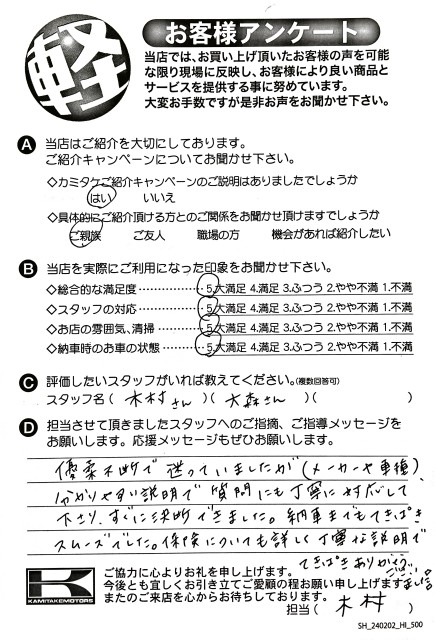 軽
お客様アンケート
当店では、お買い上げ頂いたお客様の声を可能
な限り現場に反映し、お客様により良い商品と
サービスを提供する事に努めています。
大変お手数ですが是非お声をお聞かせ下さい。
A 当店はご紹介を大切にしております。
ご紹介キャンペーンについてお聞かせ下さい。
◇カミタケご紹介キャンペーンのご説明はありましたでしょうか
はい いいえ
◇具体的にご紹介頂ける方とのご関係をお聞かせ頂けますでしょうか
ご親族 ご友人 職場の方 機会があれば紹介したい
B 当店を実際にご利用になった印象をお聞かせ下さい。
◇総合的な満足度 5.大満足 4.満足 3.ふつう 2.やや不満 1.不満
◇スタッフの対応 5.大満足 4.満足 3.ふつう 2.やや不満 1.不満
◇お店の雰囲気、清掃 5.大満足 4.満足 3.ふつう 2.やや不満 1.不満
◇納車時のお車の状態 5.大満足 4.満足 3.ふつう 2.やや不満 1.不満
C 評価したいスタッフがいれば教えてください。(複数回答可)
スタッフ名 ( 木村さん ) ( 大森さん ) ( )
D 担当させて頂きましたスタッフへのご指摘、ご指導メッセージを
お願いします。応援メッセージもぜひお願いします。
優柔不断で迷っていましたが(メーカーや車種)
分かりやすい説明で質問にも丁寧に対応して
下さり、すぐに決断できました。納車までもてきぱき
スムーズでした。保険についても詳しく丁寧な説明で
てきぱきありがとう
ございました。
K
KAMITAKEMOTORS
ご協力に心よりお礼を申し上げます。
今後とも宜しくお引き立てご愛顧の程お願い申し上げます。
またのご来店を心からお待ちしております。
担当( 木村 )
SH_240202_HI_500